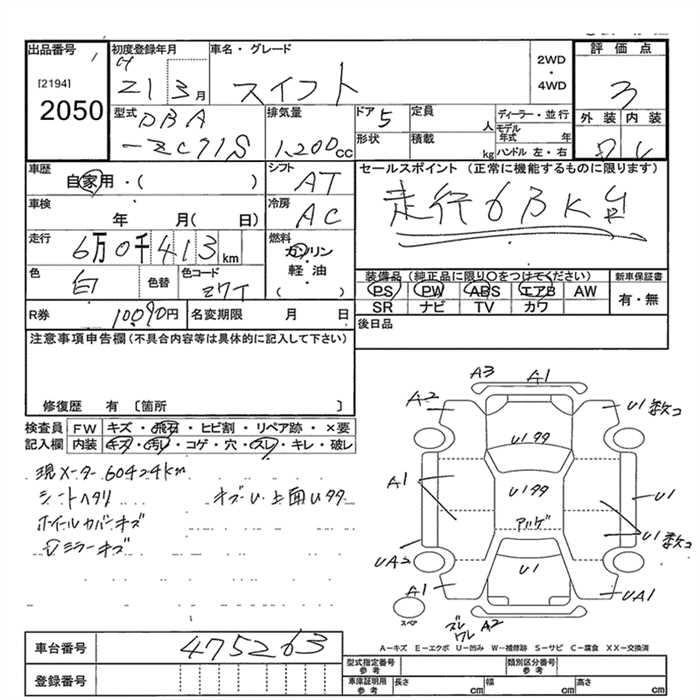 出品番号
[2194]
2050
初度登録年月
H 21 3月
車名・グレード
スイフト
2WD
・
4WD
評価点
3
外装 内装
型式
DBA
-ZC71S
排気量
1,200cc
ドア 5
定員
人
形状
積載
kg
ディーラー・並行
モデル年式 年
ハンドル 左・右
車歴
自家用・( )
シフト
AT
車検
年 月( 日)
冷房
AC
走行
6万0千413km
燃料
ガソリン
軽・油
( )
色
白
色替
色コード
Z7T
セールスポイント(正常に機能するものに限ります)
走行6万K台
装備品(純正品に限り○をつけてください)
PS PW ABS エアB AW
SR ナビ TV カワ
新車保証書
有・無
R券
10,090円
名変期限 月 日
後日品
注意事項申告欄(不具合内容等は具体的に記入して下さい)
修復歴 有 〔箇所 〕
検査員記入欄
FW キズ・飛石・ヒビ割・リペア跡・×要
内装 キズ・汚れ・コゲ・穴・スレ・キレ・破レ
現メーター60424km
シートヘタリ
ホイルカバーキズ
ミラーキズ
上面Uタタ
A3 A1
A2
U1数コ
U1タタ
A1
U1タタ
U1
アバゲ
U1数コ
UA2
U1
A1
UA1
スペア
ズレ
ワレ A2
A−キズ E−エクボ U−凹み W−補修跡 S−サビ C−腐食 XX−交換済
車台番号
475263
登録番号
型式指定番号
参考
類別区分番号
参考
車庫証明用
参考
長さ cm
幅 cm
高さ cm